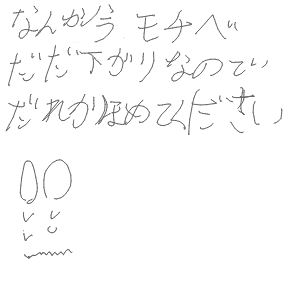 なんか今 モチベ
だだ下がりなのでい
だれかほめてください